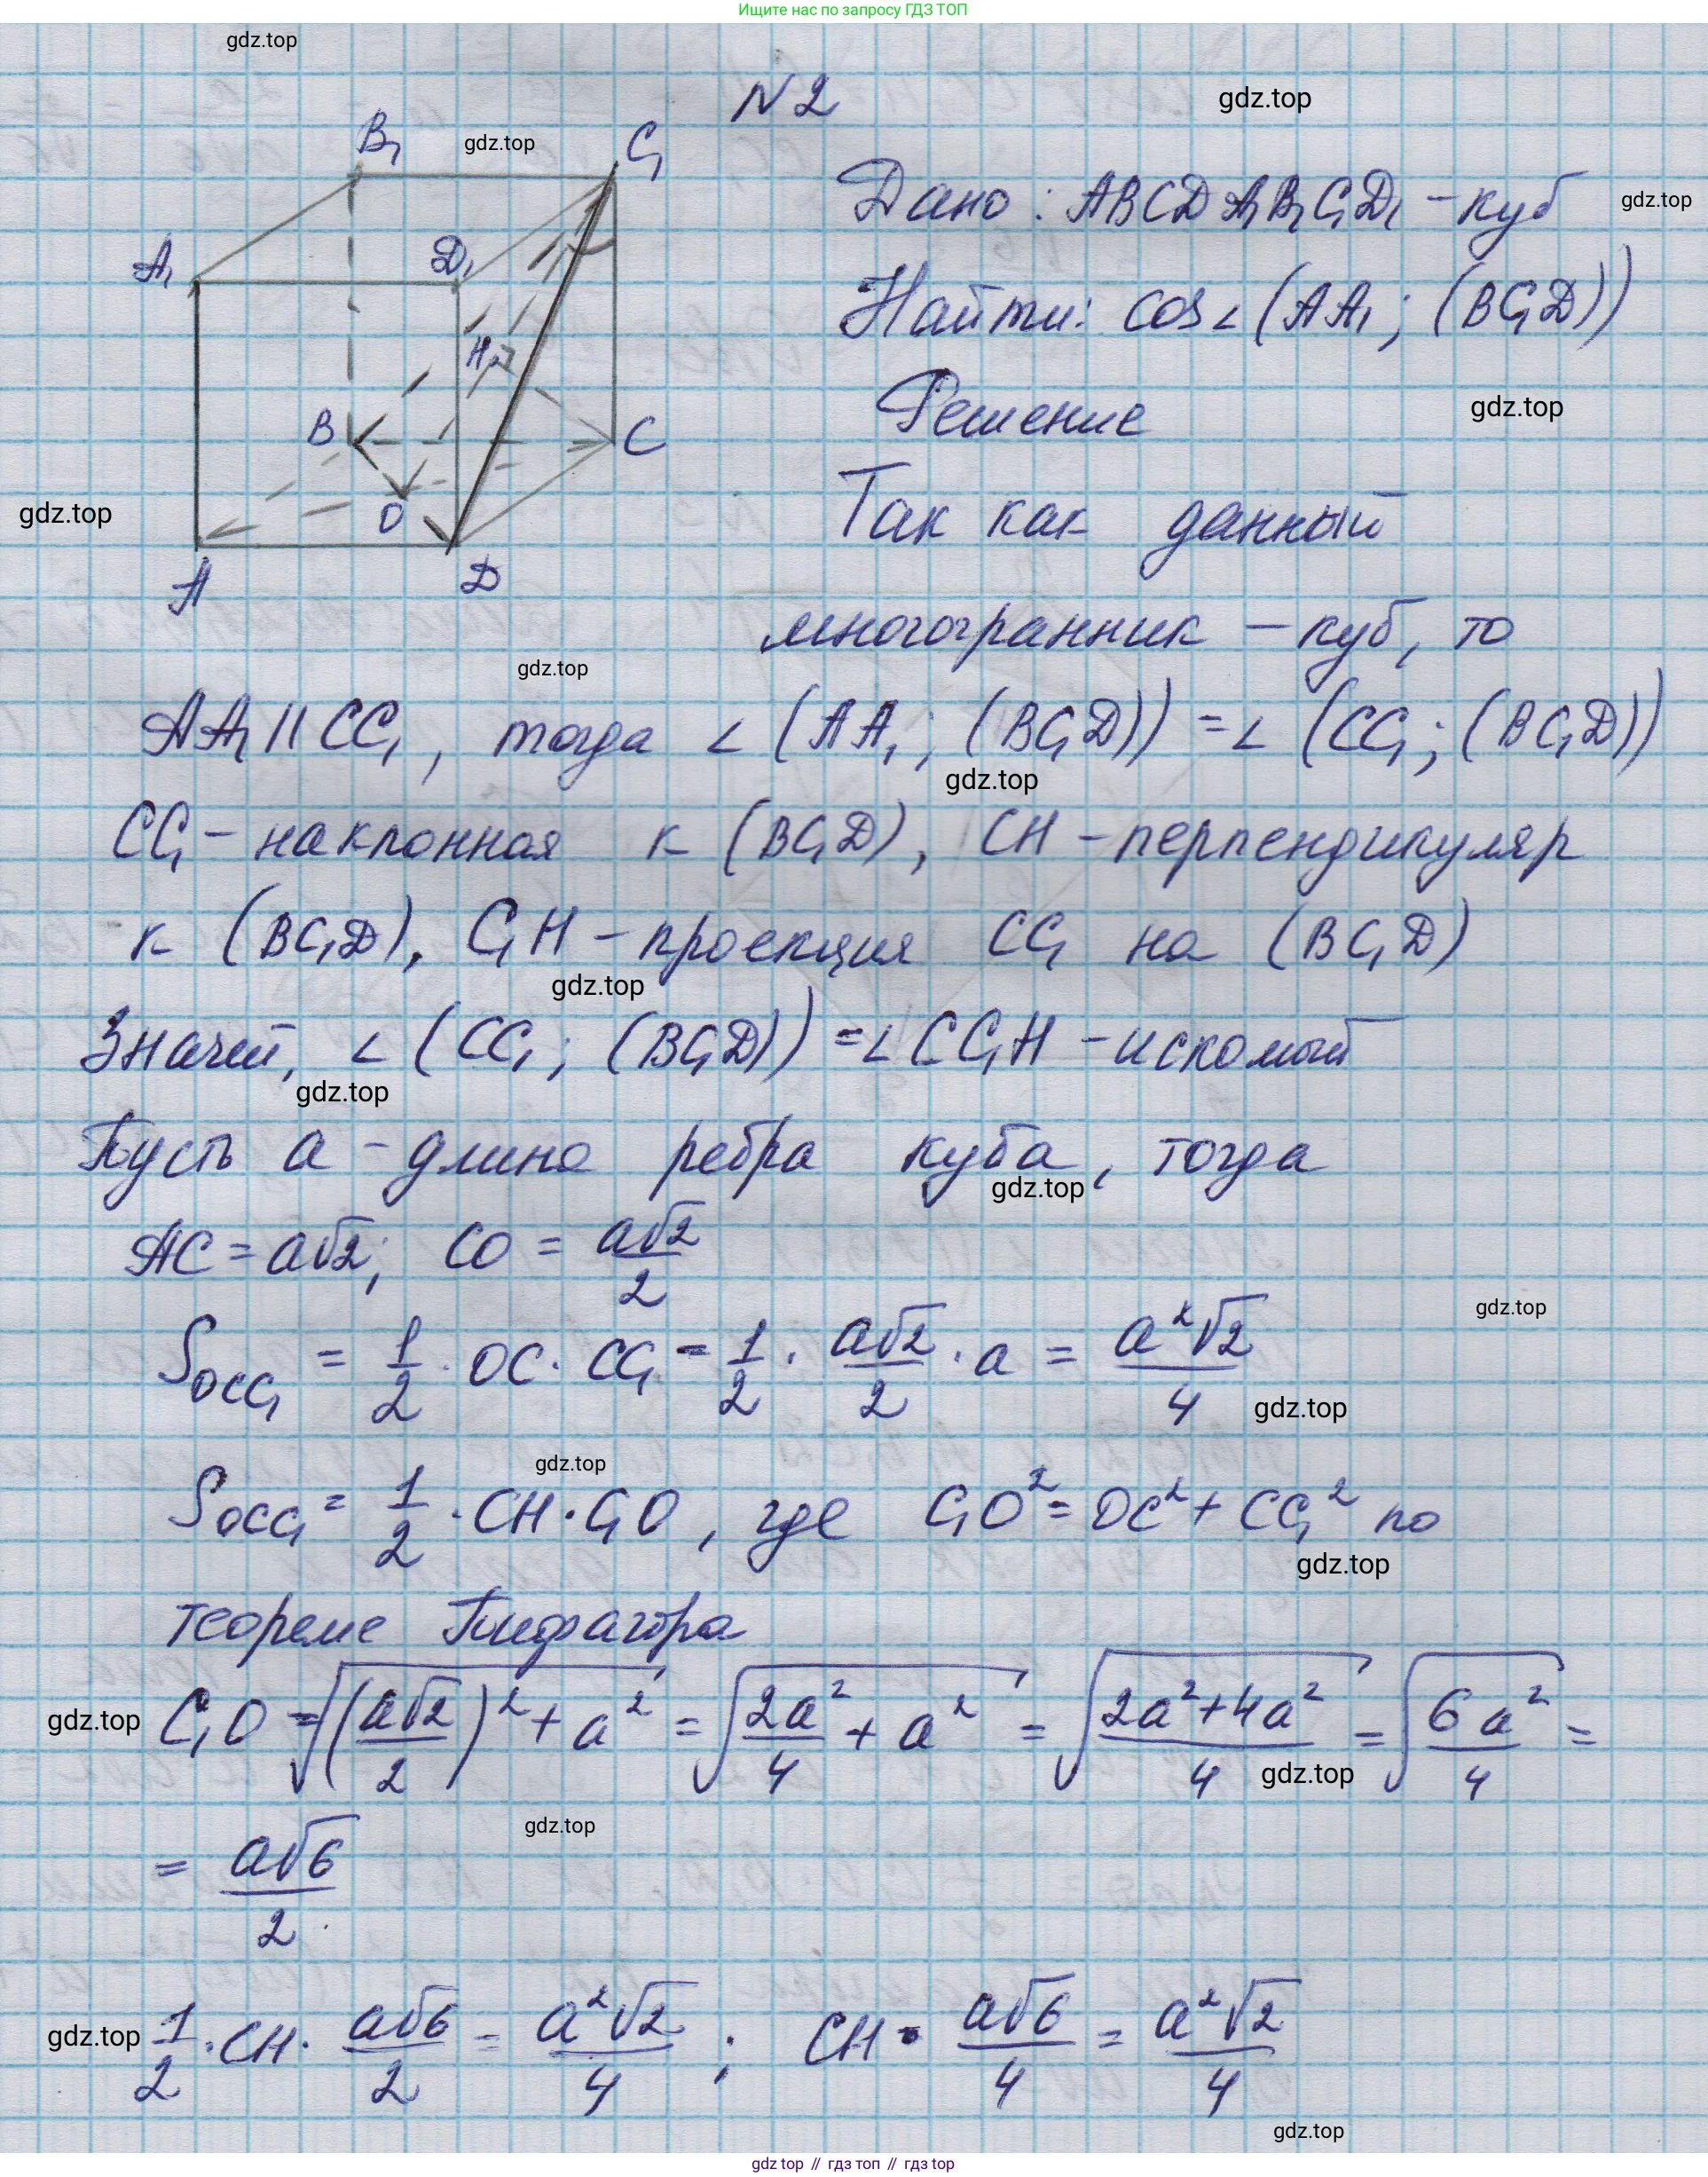 Ищите нас по запросу ГДЗ ТОП
gdz.top
№2
gdz.top
B₁
gdz.top
C₁
Дано: ABCDA₁B₁C₁D₁ – куб
gdz.top
A₁
D₁
Найти: cos∠(AA₁; (BC₁D))
H
Решение
gdz.top
B
C
gdz.top
O
Так как данный
A
D
многогранник – куб, то
gdz.top
AA₁ || CC₁, тогда ∠(AA₁; (BC₁D)) = ∠(CC₁; (BC₁D))
gdz.top
CC₁ – наклонная к (BC₁D), CH – перпендикуляр
к (BC₁D), C₁H – проекция CC₁ на (BC₁D)
gdz.top
Значит, ∠(CC₁; (BC₁D)) = ∠CC₁H – искомый
gdz.top
Пусть a – длина ребра куба, тогда
gdz.top
AC = a√2; CO = a√2/2
gdz.top
S_OCC₁ = 1/2 · OC · CC₁ = 1/2 · a√2/2 · a = a²√2/4
gdz.top
gdz.top
S_OCC₁ = 1/2 · CH · C₁O, где C₁O² = OC² + CC₁² по
gdz.top
теореме Пифагора
gdz.top
C₁O = √((a√2/2)² + a²) = √(2a²/4 + a²) = √((2a²+4a²)/4) = √(6a²/4) =
gdz.top
gdz.top
= a√6/2
gdz.top
1/2 · CH · a√6/2 = a²√2/4; CH · a√6/4 = a²√2/4
gdz.top
gdz.top // гдз топ // гдз top